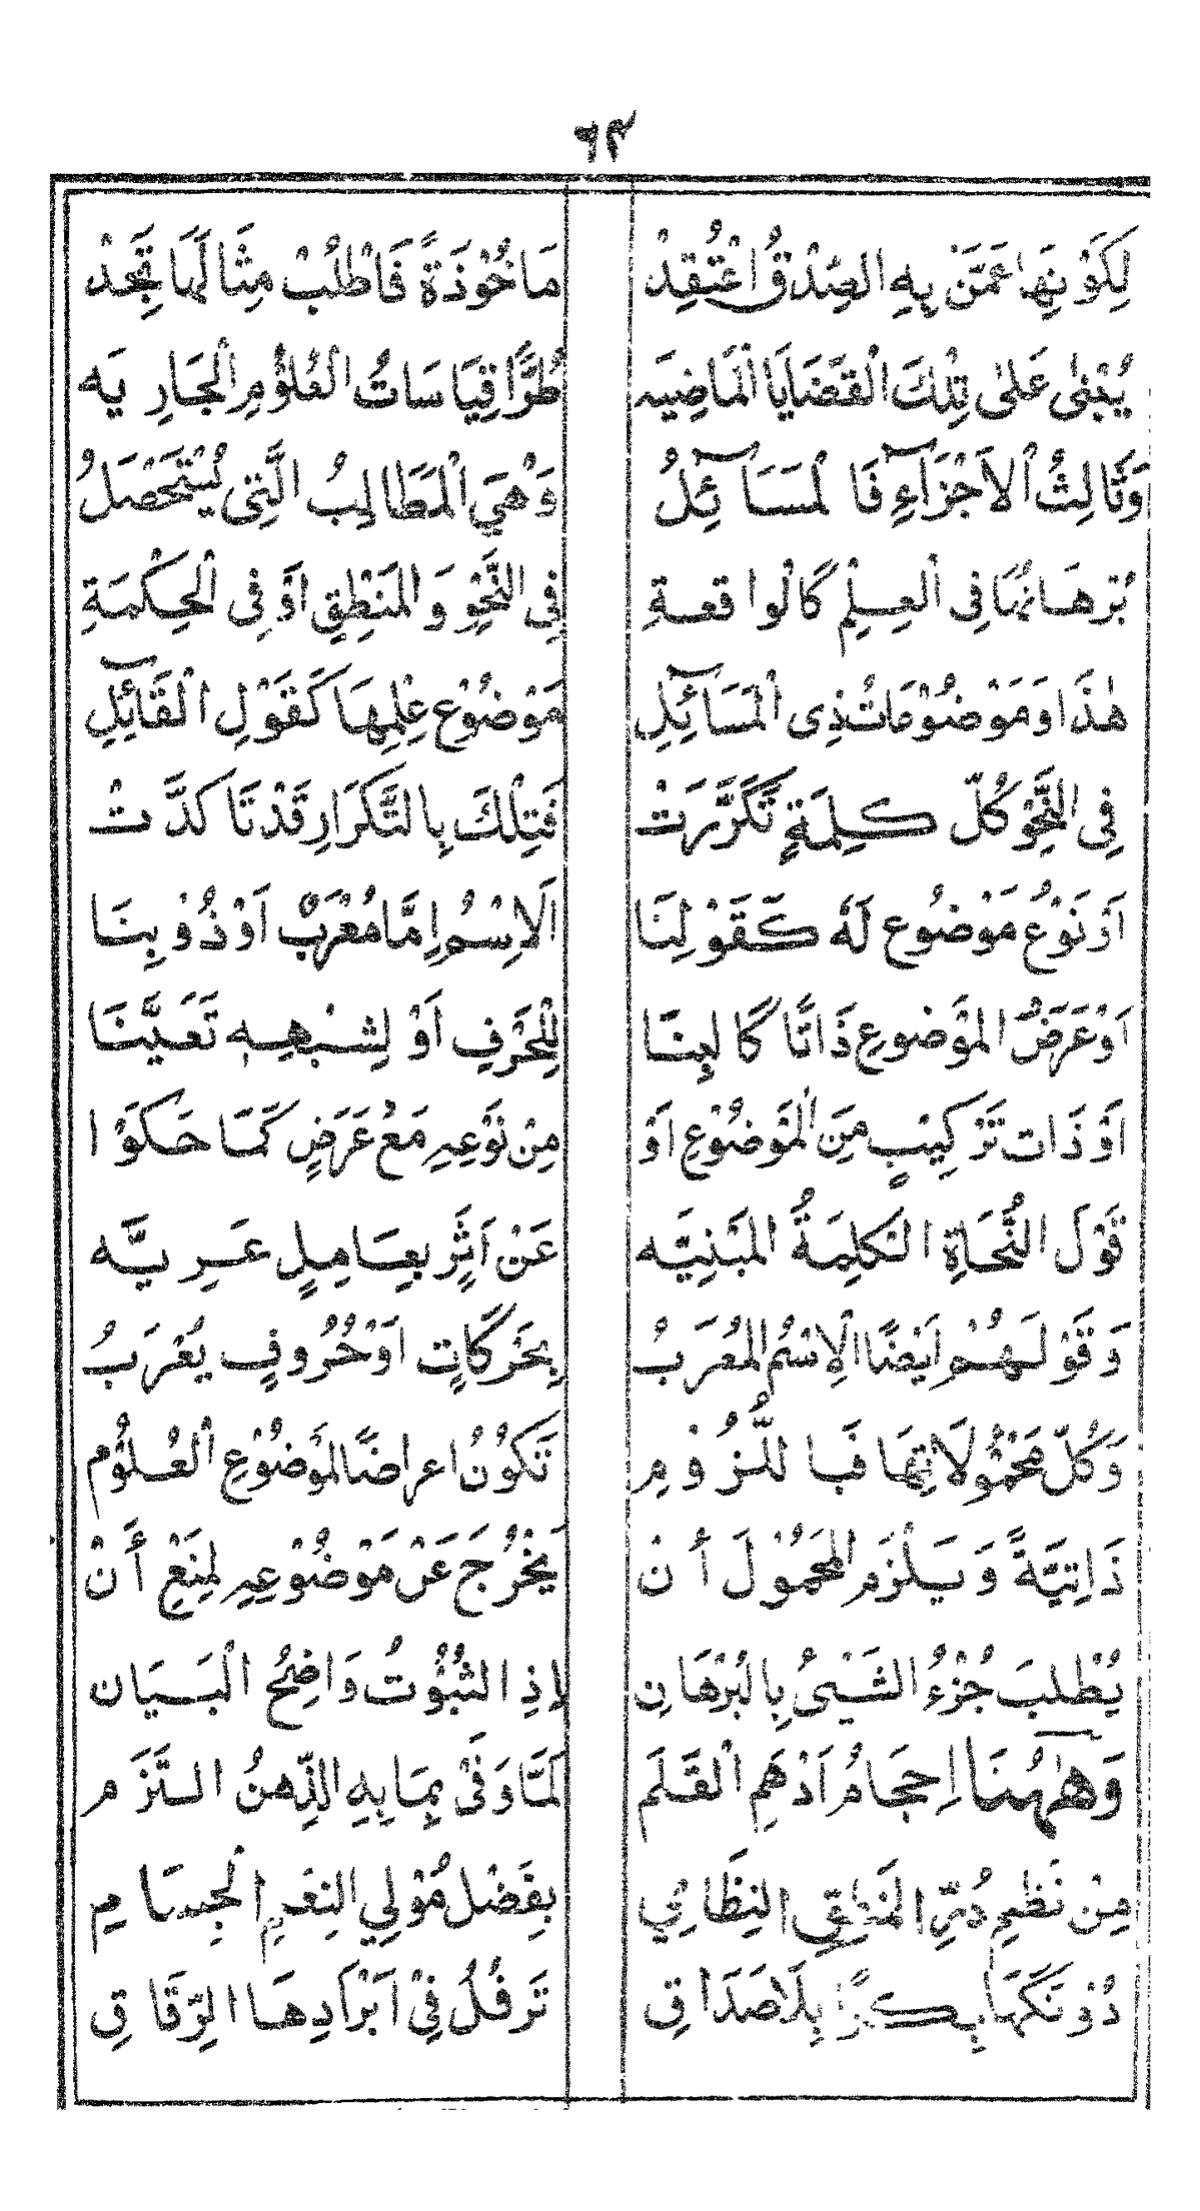 ٦٩
لِكَوْنِهَا عَمَّنْ بِهِ الصِّدْقُ اعْتُقِدْ مَاخُوْذَةً فَاطْلُبْ مِثَالَهَا تَجِدْ
يُبْنٰى عَلٰى تِلْكَ الْقَضَايَا الْمَاضِيَه طُرًّا قِيَاسَاتُ الْعُلُوْمِ الْجَارِيَه
وَثَالِثُ الْاَجْزَآءِ فَالْمَسَآئِلُ وَهْيَ الْمَطَالِبُ الَّتِى يُسْتَحْصَلُ
بُرْهَانُهَا فِى الْعِلْمِ كَالْوَاقِعَةِ فِى النَّحْوِ وَالْمَنْطِقِ اَوْ فِى الْحِكْمَةِ
هٰذَا وَمَوْضُوْعَاتُ ذِى الْمَسَآئِلِ مَوْضُوْعِ عِلْمِهَا كَقَوْلِ الْقَآئِلِ
فِى النَّحْوِ كُلُّ كِلِمَةٍ تَكَرَّرَتْ فَتِلْكَ بِالتَّكْرَارِ قَدْ تَاَكَّدَتْ
اَوْ نَوْعُ مَوْضُوعٍ لَهٗ كَقَوْلِنَا اَلْاِسْمُ اِمَّا مُعْرَبٌ اَوْ ذُوْ بِنَا
اَوْ عَرَضُ الْمَوْضُوعِ ذَاتًا كَالْبِنَا لِلْحَرْفِ اَوْ لِشِبْهِهٖ تَعَيَّنَا
اَوْ ذَاتُ تَرْكِيْبٍ مِنَ الْمَوْضُوْعِ اَوْ مِنْ نَوْعِهٖ مَعْ عَرَضٍ كَمَا حَكَوْا
قَوْلَ النُّحَاةِ الْكَلِمَةُ الْمَبْنِيَّه عَنْ اَثَرٍ بِعَامِلٍ عَرِيَّه
وَقَوْلَهُمْ اَيْضًا الْاِسْمُ الْمُعْرَبُ بِحَرَكَاتٍ اَوْ حُرُوفٍ يُعْرَبُ
وَكُلُّ مَحْمُوْلَاتِهَا فَبِاللُّزُوْمِ تَكُوْنُ اعراضًا لِمَوْضُوْعِ الْعُلُوْمِ
ذَاتِيَّةً وَيَلْزَمُ الْمَحْمُوْلَ أَنْ يَخْرُجَ عَنْ مَوْضُوْعِهٖ لِمَنْعِ أَنْ
يُطْلَبَ جُزْءُ الشَّيْئِ بِالْبُرْهَانِ اِذِ الثُّبُوْتُ وَاضِحُ الْبَيَانِ
وَهٰهُنَا اِحْجَامُ اَدْهَمِ الْقَلَمِ لَمَّا وَفٰى بِمَا بِهِ الذِّهْنُ الْتَزَمَ
مِنْ نَظْمِ دُرِّ الْمَنْطِقِ النِّظَامِيْ بِفَضْلِ مُوْلِي النِّعَمِ الْجِسَامِ
دُوْنَكَهَا بِكْرًا بِلَا صَدَاقِ تَرْفُلُ فِيْ اَبْرَادِهَا الرِّقَاقِ